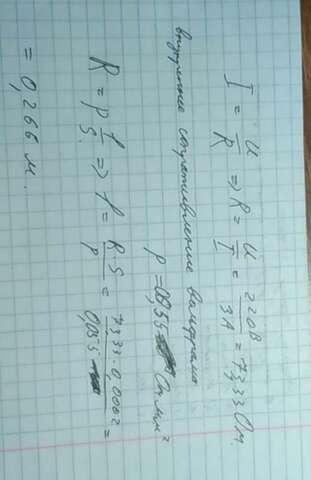 I = U/R => R = U/I = 220В/3А = 7,333 Ом.
сопротивление вольфрама
ρ = 0,055 Ом·мм²
R = ρ l/S => l = R·S/ρ = 7,33·0,0002/0,055 =
= 0,266 м.